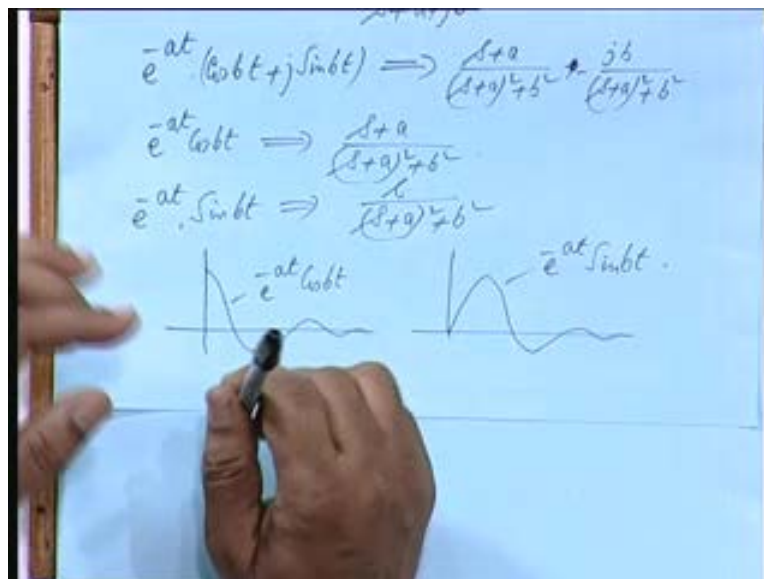 e^{-at}.(Cosbt+jSinbt) ⟹ \frac{s+a}{(s+a)^2+b^2} - \frac{jb}{(s+a)^2+b^2}
e^{-at}Cosbt ⟹ \frac{s+a}{(s+a)^2+b^2}
e^{-at}.Sinbt ⟹ \frac{}{(s+a)^2+b^2}
e^{-at}Cosbt
e^{-at}Sinbt.